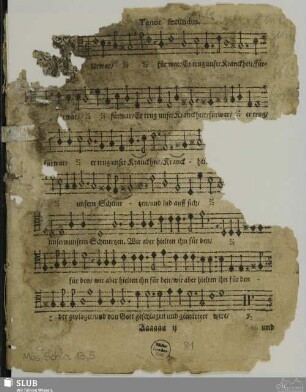 Tenor secundus.
fürwar/ fürwar/ Er trug unser Kranckheit/ für-
war/ fürwar/ Er trug unser Kranckheit/ fürwar/ er trug/
fürwar er trug unser Kranckheit/ Kranck- heit.
unsern Schmer- tzen/ und lud auff sich/
unser unsern Schmertzen. Wir aber hielten ihn für den/
für den/ wir aber hielten ihn für den/ wir aber hielten ihn für den-
der geplaget/ und von Gott geschlagen und gemartert were/
Aaaaaa ij und
81
Mus. Schw. 13,5
SLUB
Wir führen Wissen.